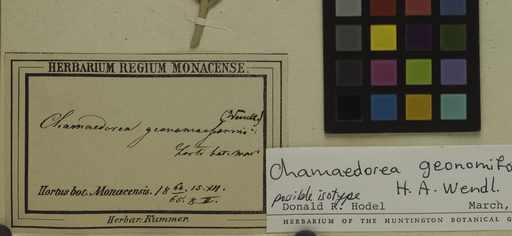 HERBARIUM REGIUM MONACENSE.
(Wendl.)
Chamaedorea geonomaeformis
horti bot. Mon
Hortus bot. Monacensis. 18 64. 15. XII.
65. 8. II.
Herbar. Kummer.
Chamaedorea geonomifo
H. A. Wendl.
possible isotype
Donald R. Hodel March,
HERBARIUM OF THE HUNTINGTON BOTANICAL G